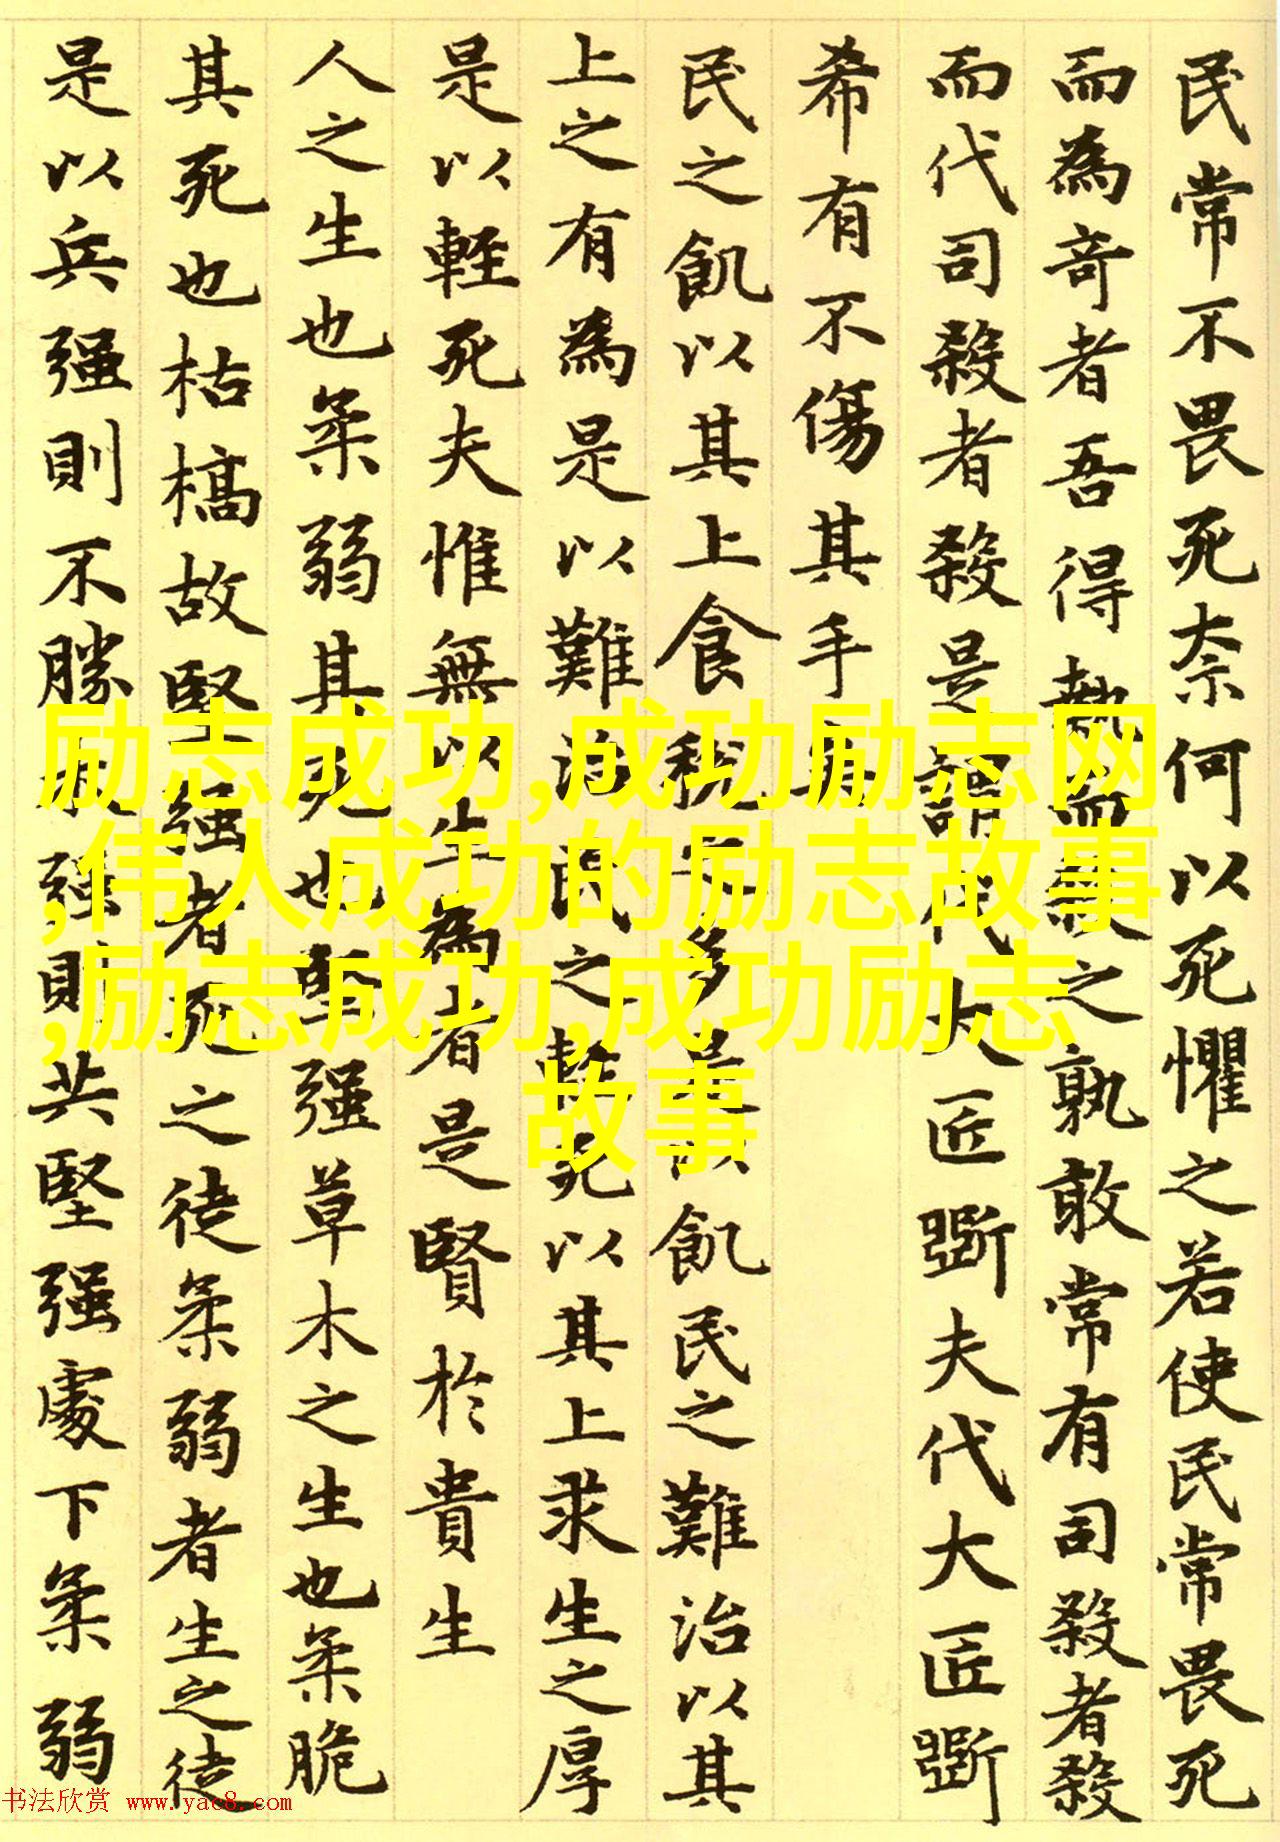 民常不畏死奈何以死懼之若使民常畏死
而為奇者吾得執而殺之孰敢常有司殺者殺
而代司殺者殺是謂代大匠斲夫代大匠斲
希有不傷其手矣
民之飢以其上食稅之多是以飢民之難治以其
上之有為是以難治民之輕死以其上求生之厚
是以輕死夫惟無以生為者是賢於貴生
人之生也柔弱其死也堅强草木之生也柔脆
其死也枯槁故堅强者死之徒柔弱者生之徒
是以兵强則不勝木强則共堅强處下柔弱
励志成功,成功励志网
,伟人成功的励志故事
,励志成功,成功励志
故事
书法欣赏 www.yac8.com